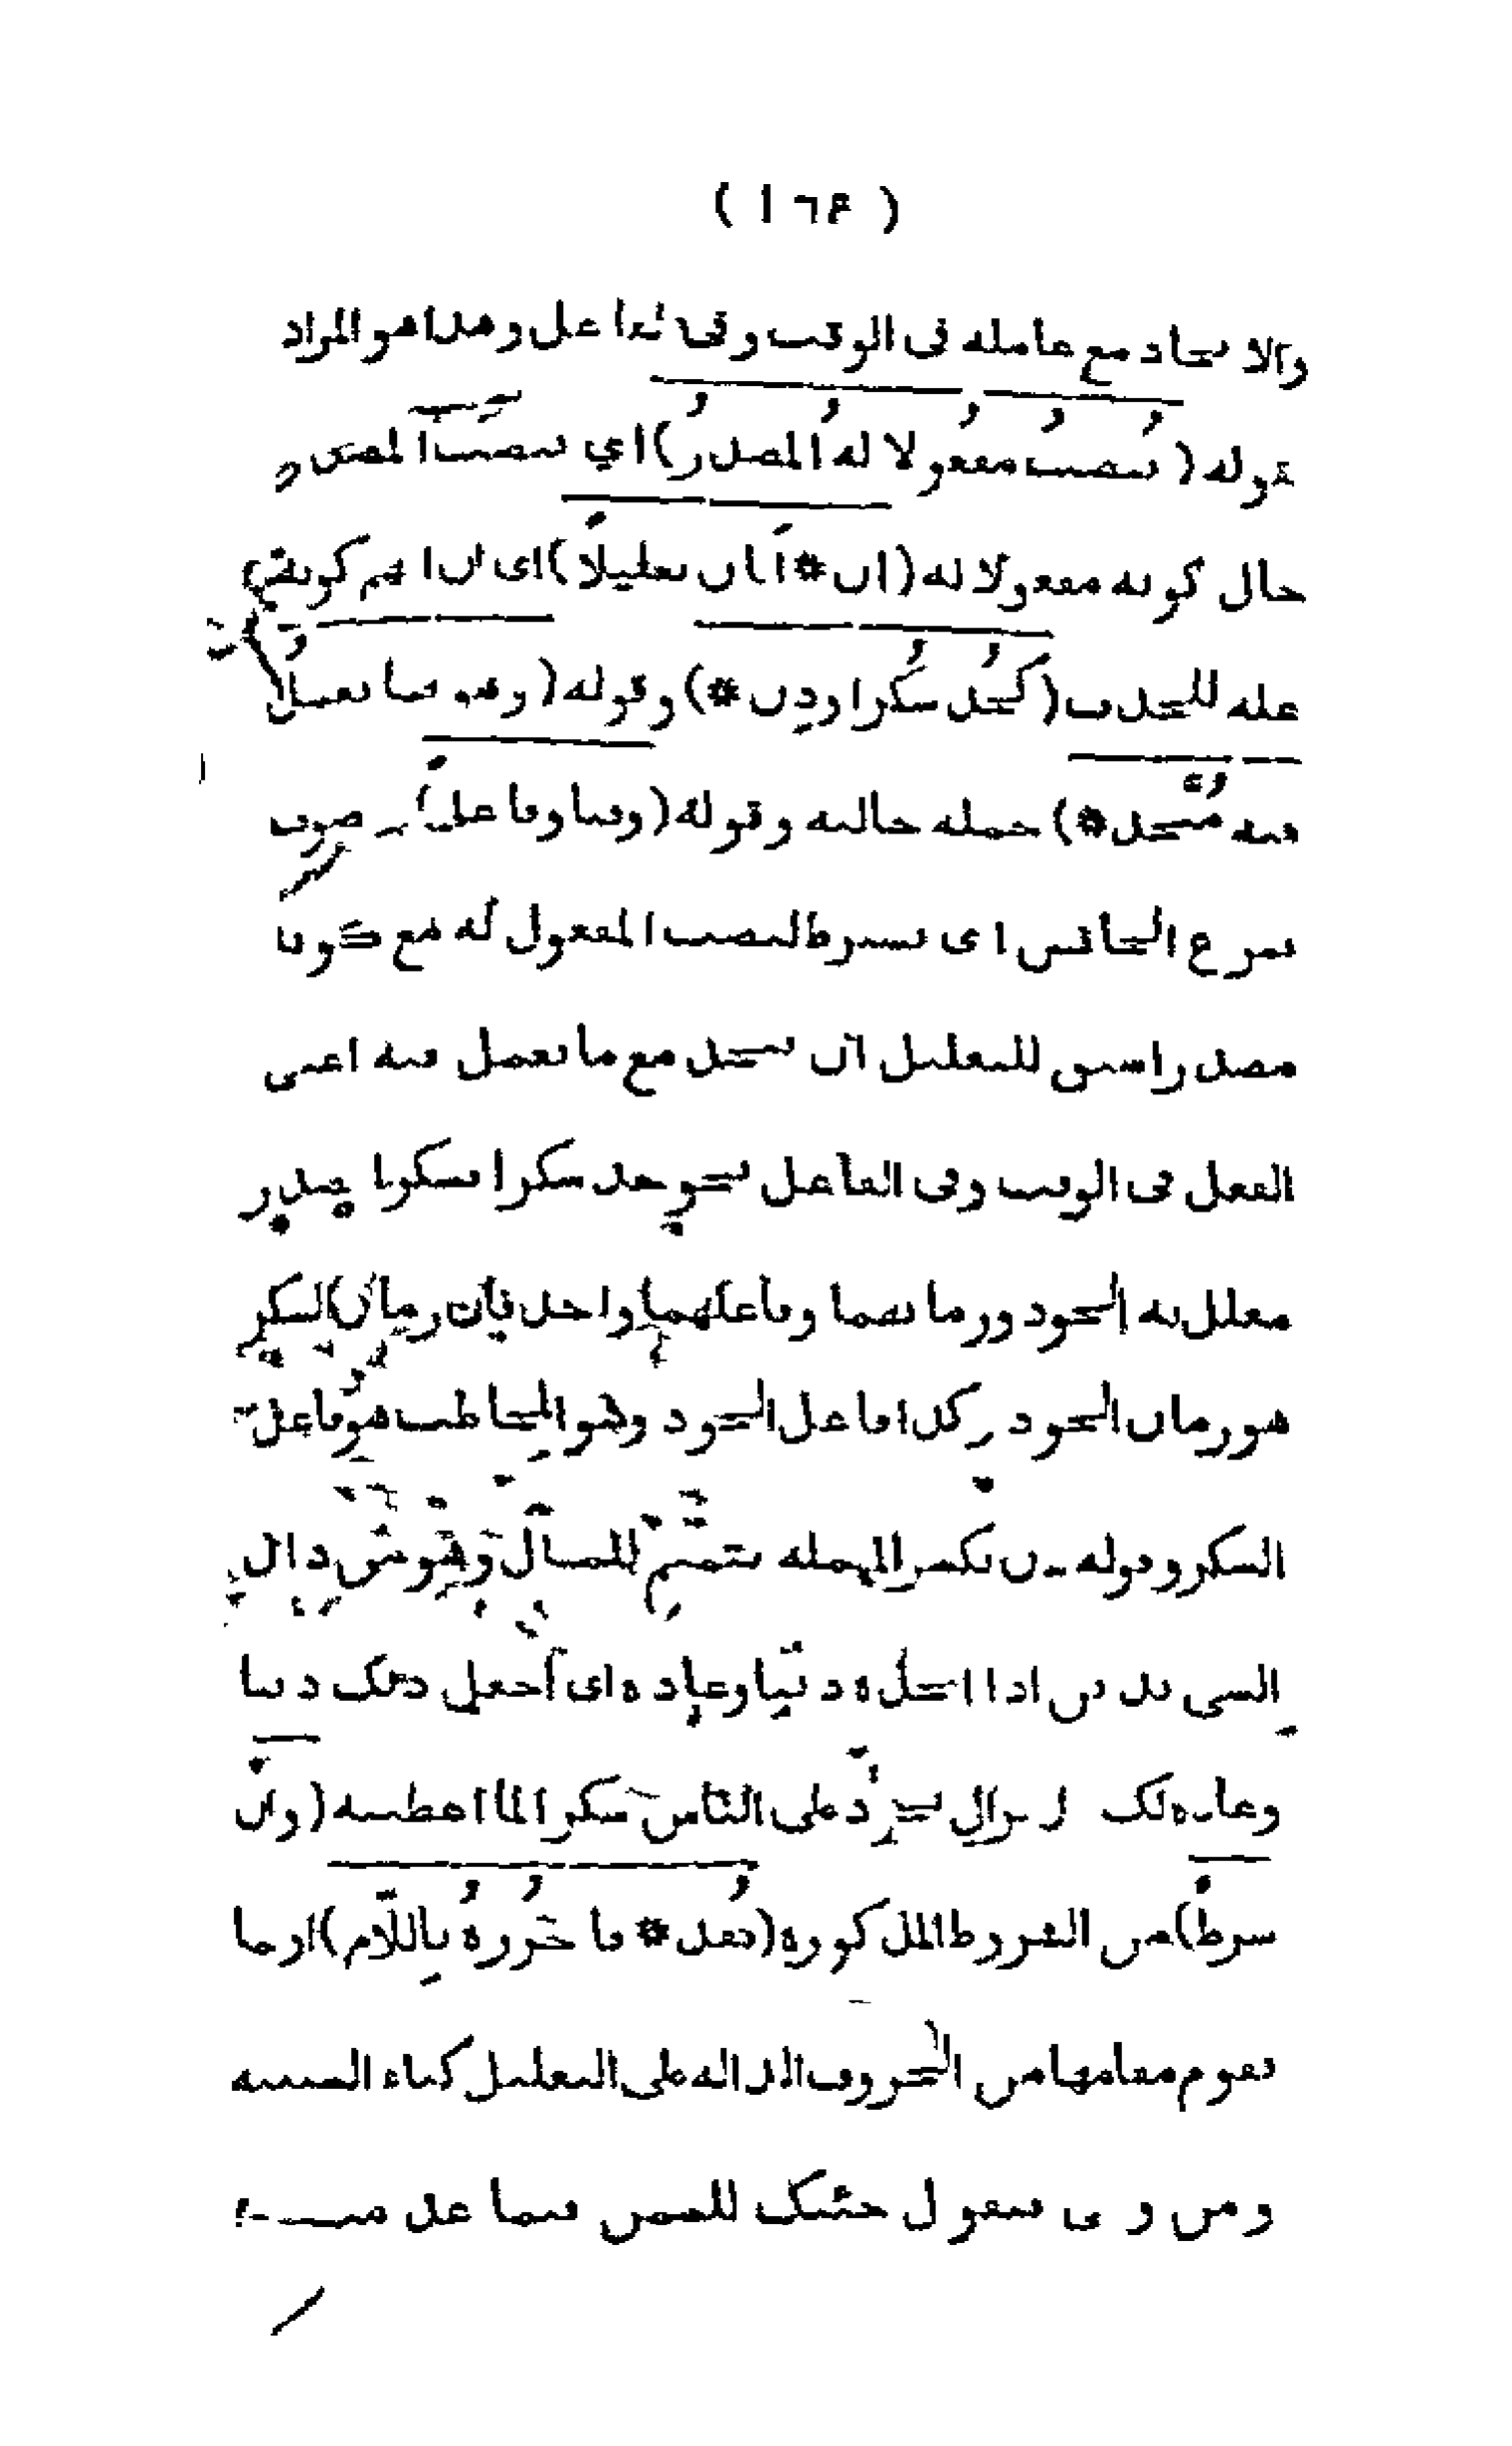 ( ١٦٤ )
والاتحاد مع عامله فى الوقت وفى الفاعل وهذا هو المراد
بقوله ( ينصب مفعولا له المصدر ) اي ينصب المصدر
حال كونه مفعولا له ( ان * ابان تعليلا ) اى ان افهم كونه
علة للحدث ( كجد شكرا ودن * ) وقوله ( وهو بما يعمل
فيه متحد * ) جملة حالية وقوله ( وقتا وفاعلا )
بنزع الخافض اى يشترط لنصب المفعول له مع كونه
مصدرا سيق للتعليل ان يتحد مع ما يعمل فيه اعنى
الفعل فى الوقت وفى الفاعل نحو جد شكرا فشكرا مصدر
معلل به الجود وزمانهما وفاعلهما واحد فان زمان الشكر
هو زمان الجود وكذا فاعل الجود وهو المخاطب هو فاعل
الشكر وقوله دن بكسر المهملة تتميم للمسأل وهو من دان
الشى يدين اذا اتخذه دينا وعادة اى اجعل ذلك دينا
وعادة لك لا يزال تجود على الناس شكرا لما اعطيته ( وان
شرط ) من الشروط المذكورة ( فقد * فاجرره باللام ) او ما
تقوم مقامها من الحروف الدالة على التعليل كباء السببية
ومن و فى فتقول جئتك للسمن فيما عدم فيه